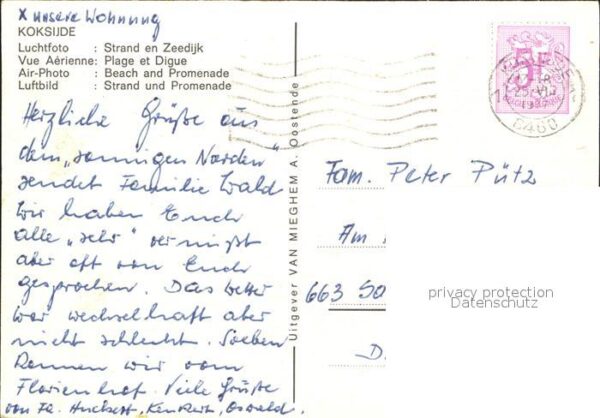 x unsere Wohnung
KOKSIJDE
Luchtfoto : Strand en Zeedijk
Vue Aérienne: Plage et Digue
Air-Photo : Beach and Promenade
Luftbild : Strand und Promenade
Herzliche Grüße aus
dem „sonnigen Norden"
sendet Familie Wald
Wir haben Euch
alle „sehr" vermißt
aber oft von Euch
gesprochen. Das Wetter
war wechselhaft aber
nicht schlecht. Soeben
kommen wir vom
Florishof. Viele Grüße
von Fa. Oswald.
Uitgever VAN MIEGHEM A. Oostende
5F
8460
Fam. Peter Pütz
Am
663 SO
D.
privacy protection
Datenschutz